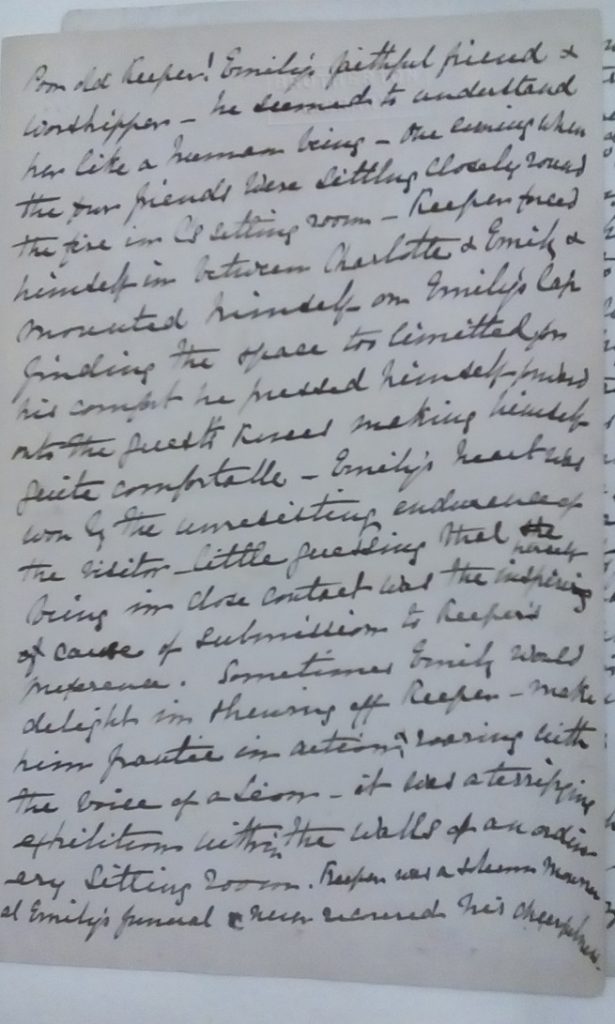 Poor old Keeper! Emily's faithful friend &
worshipper – he seemed to understand
her like a human being – One evening when
the four friends were sitting closely round
the fire in the sitting room – Keeper forced
himself in between Charlotte & Emily &
mounted himself on Emily's lap
finding the space too limitted for
his comfort he pressed himself forward
onto the guest's knees making himself
quite comfortable – Emily's heart was
won by the unresisting endurance of
the visitor – little guessing that she herself
being in close contact was the inspiring
cause of submission to Keeper's
preference. Sometimes Emily would
delight in shewing off Keeper – make
him frantic in action, & roaring with
the voice of a Lion – it was a terrifying
exhibition within the walls of an ordin-
ary Sitting room. Keeper was a solemn mourner
at Emily's funeral & never recovered his cheerfulness.